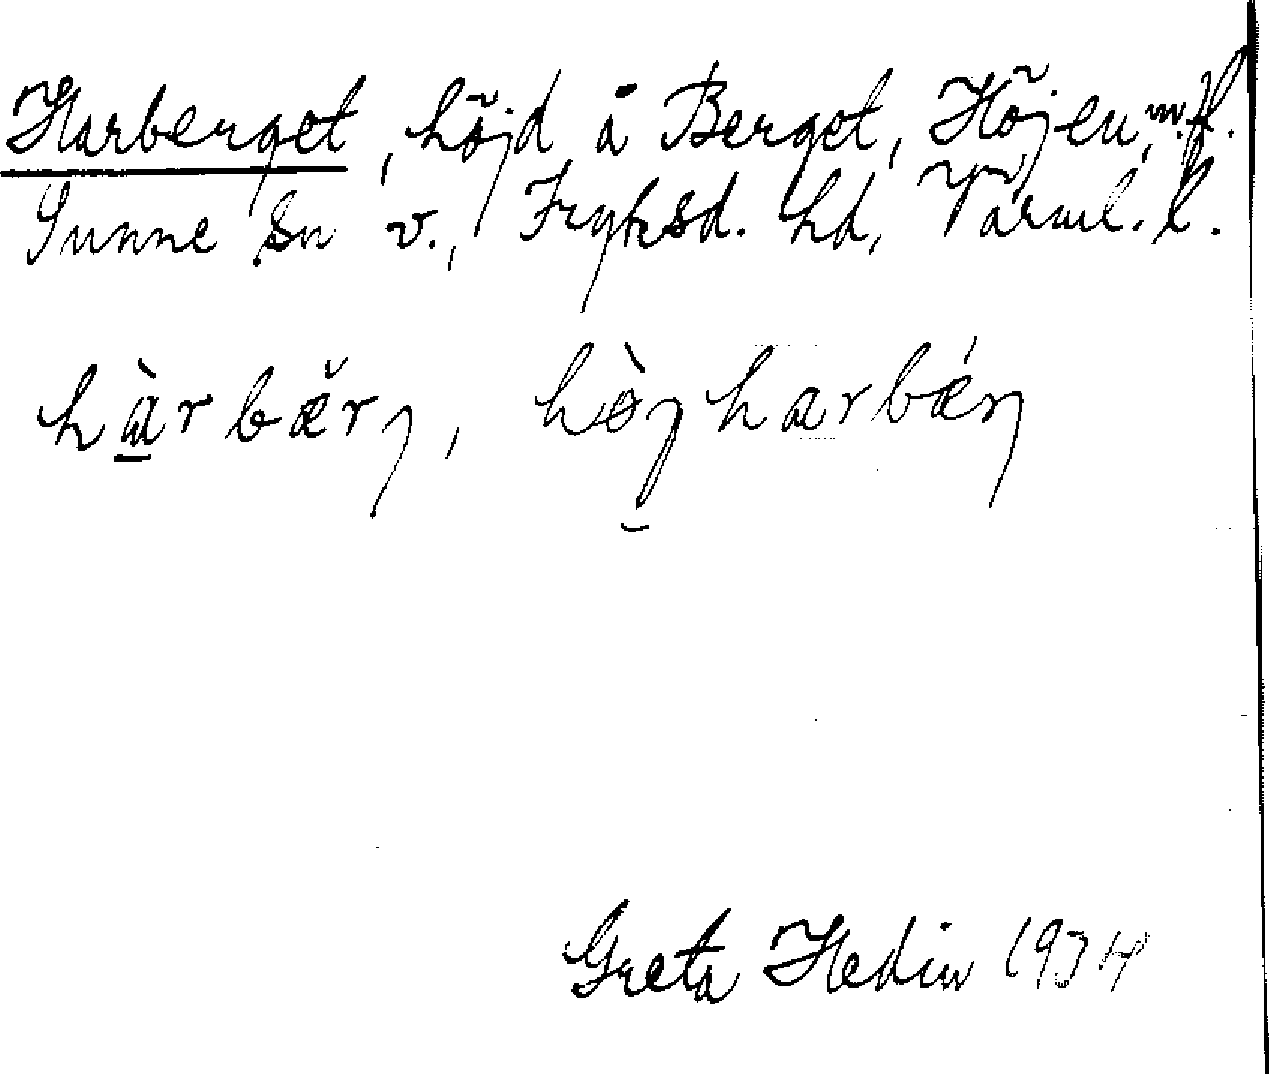 Harberget, höjd å Berget, Höjen, m.fl.
Sunne sn v., Fryksd. hd, Värml. l.
hàrbær̆ŋ, hòŋharbǽrŋ
Greta Hedin 1934